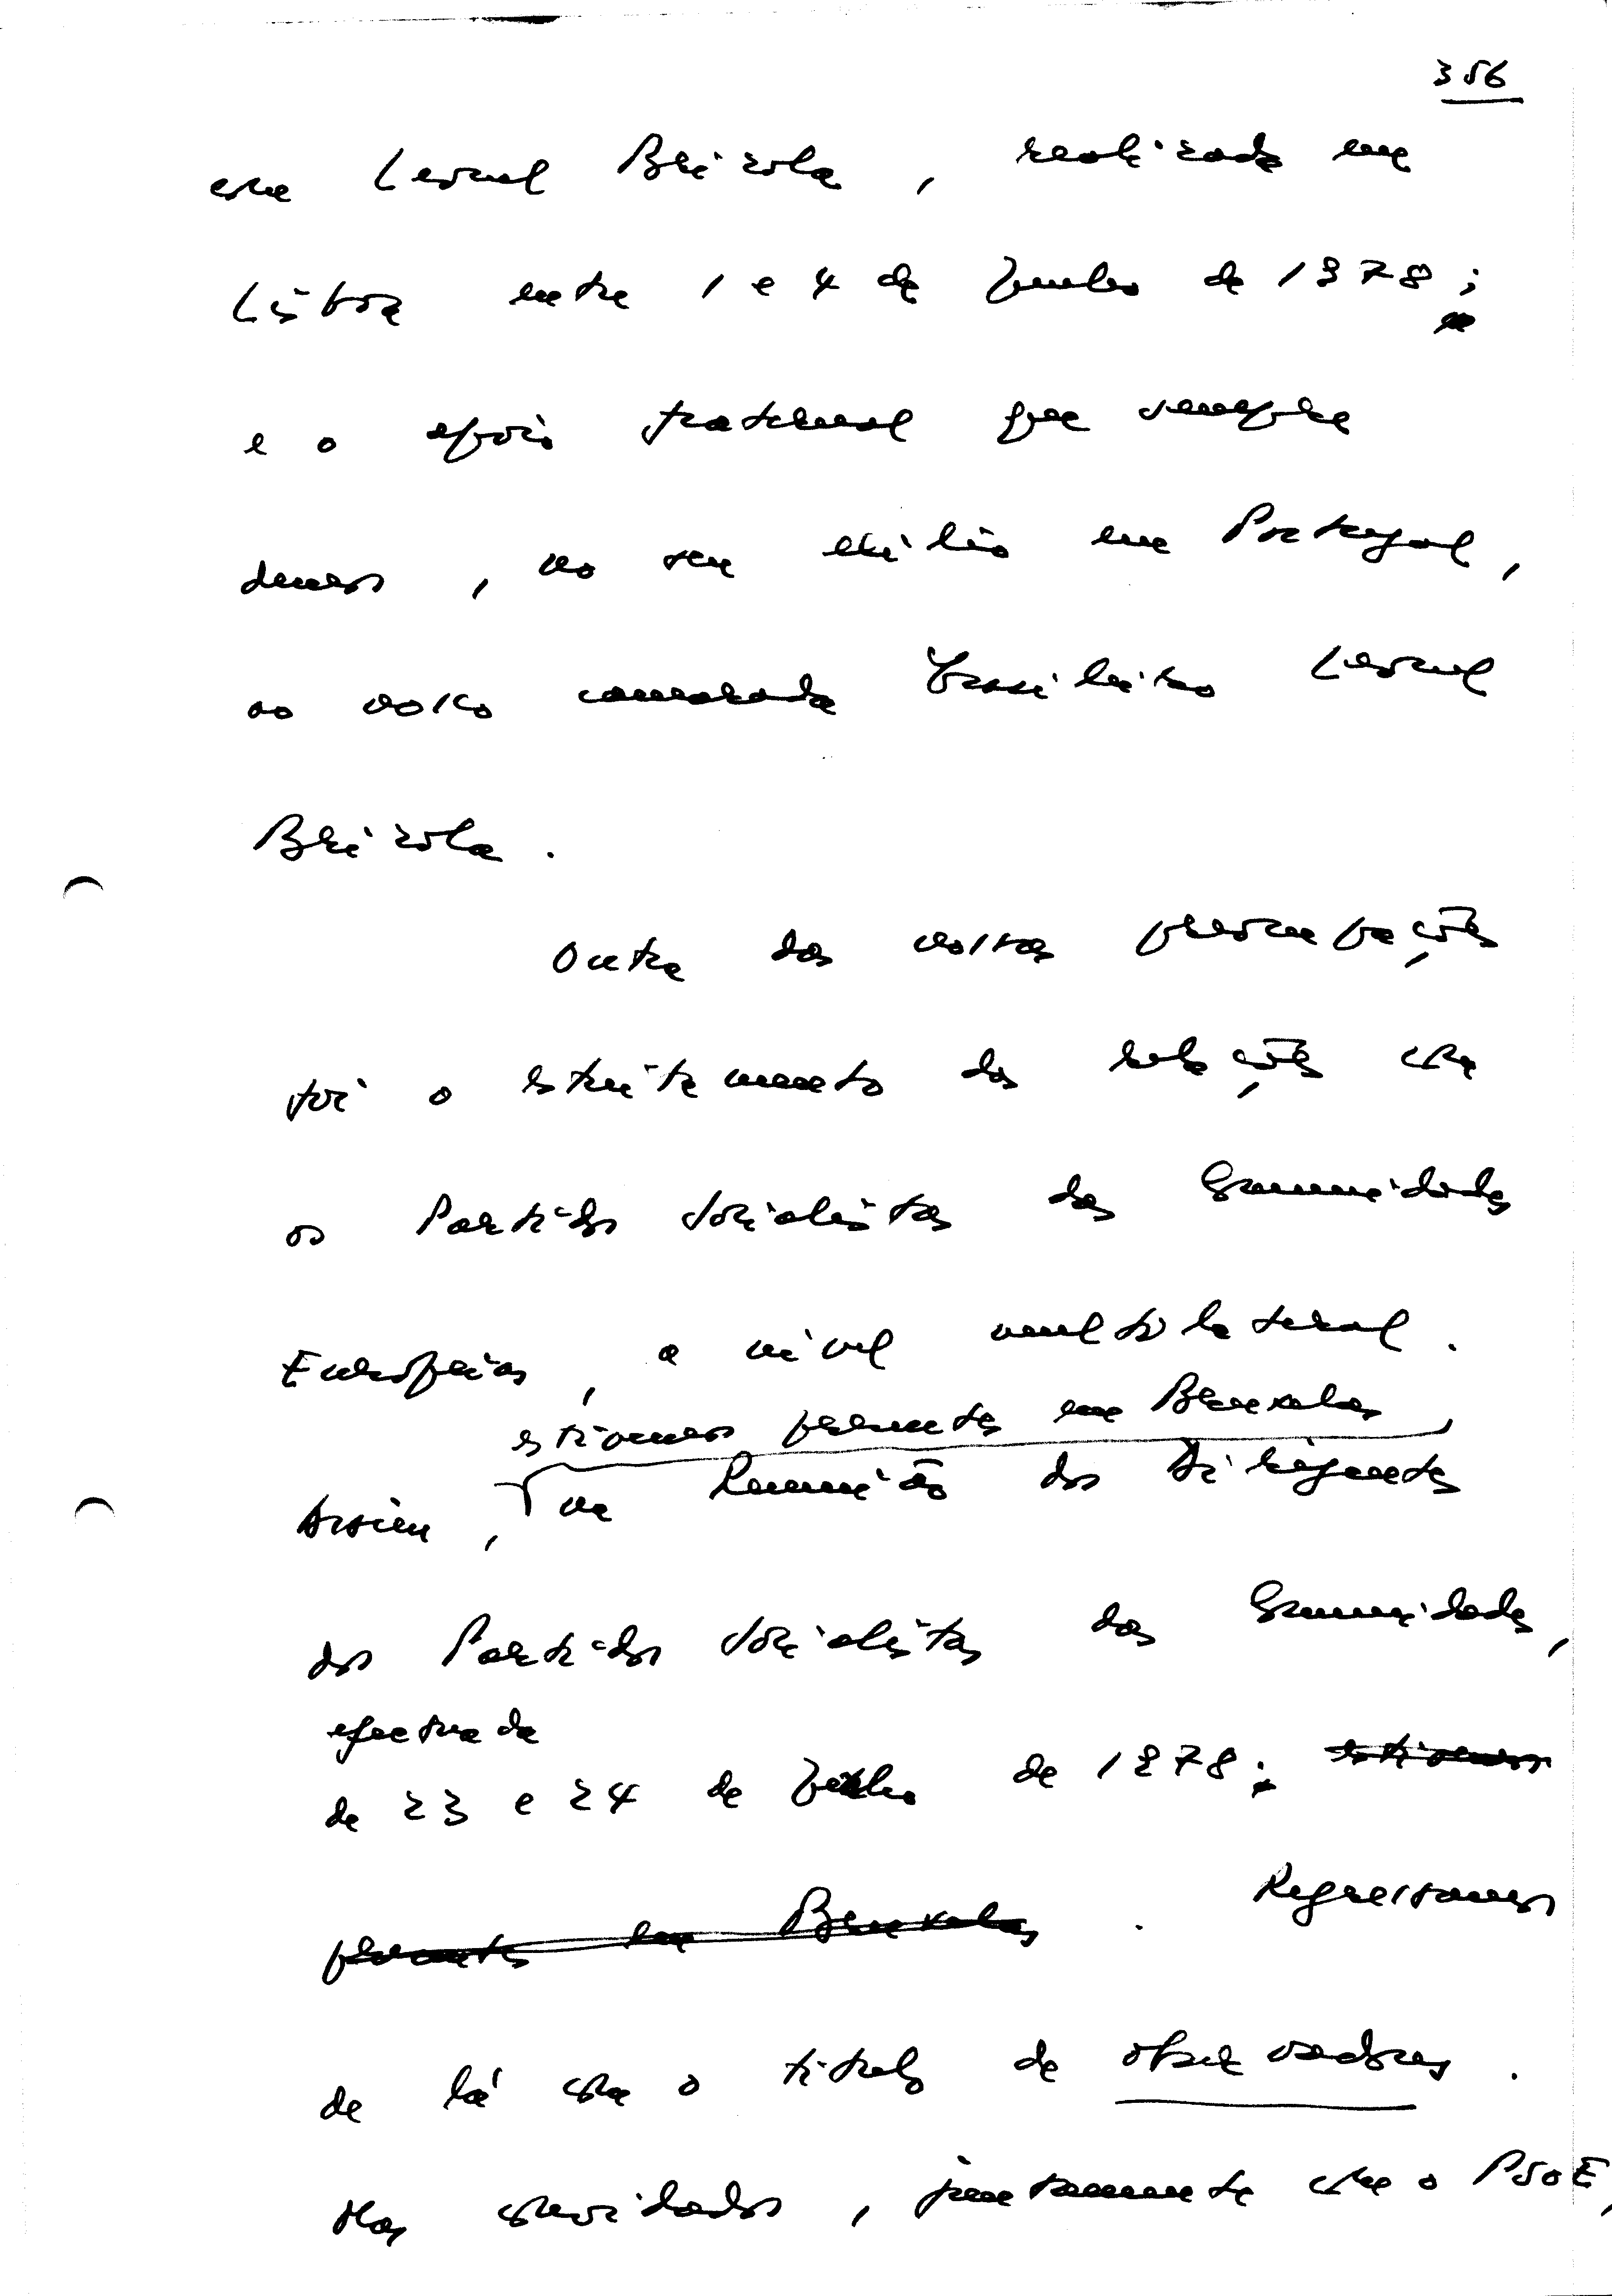 356
com Leonel Brizola, realizada em
Lisboa entre 1 e 4 de Junho de 1978;
e o apoio fraternal que sempre
demos, no seu exílio em Portugal,
ao nosso camarada brasileiro Leonel
Brizola.
Outra das nossas preocupações
foi o estreitamento das relações com
os Partidos Socialistas das Comunidades
Europeias, a nível multilateral.
estivemos presentes em Bruxelas,
Assim, na Reunião dos Dirigentes
dos Partidos Socialistas das Comunidades,
efectuada
de 23 e 24 de de 1978; estivemos
presentes em Bruxelas. Regressamos
de lá com o título de observadores.
Mas convidados, juntamente com o PSOE,